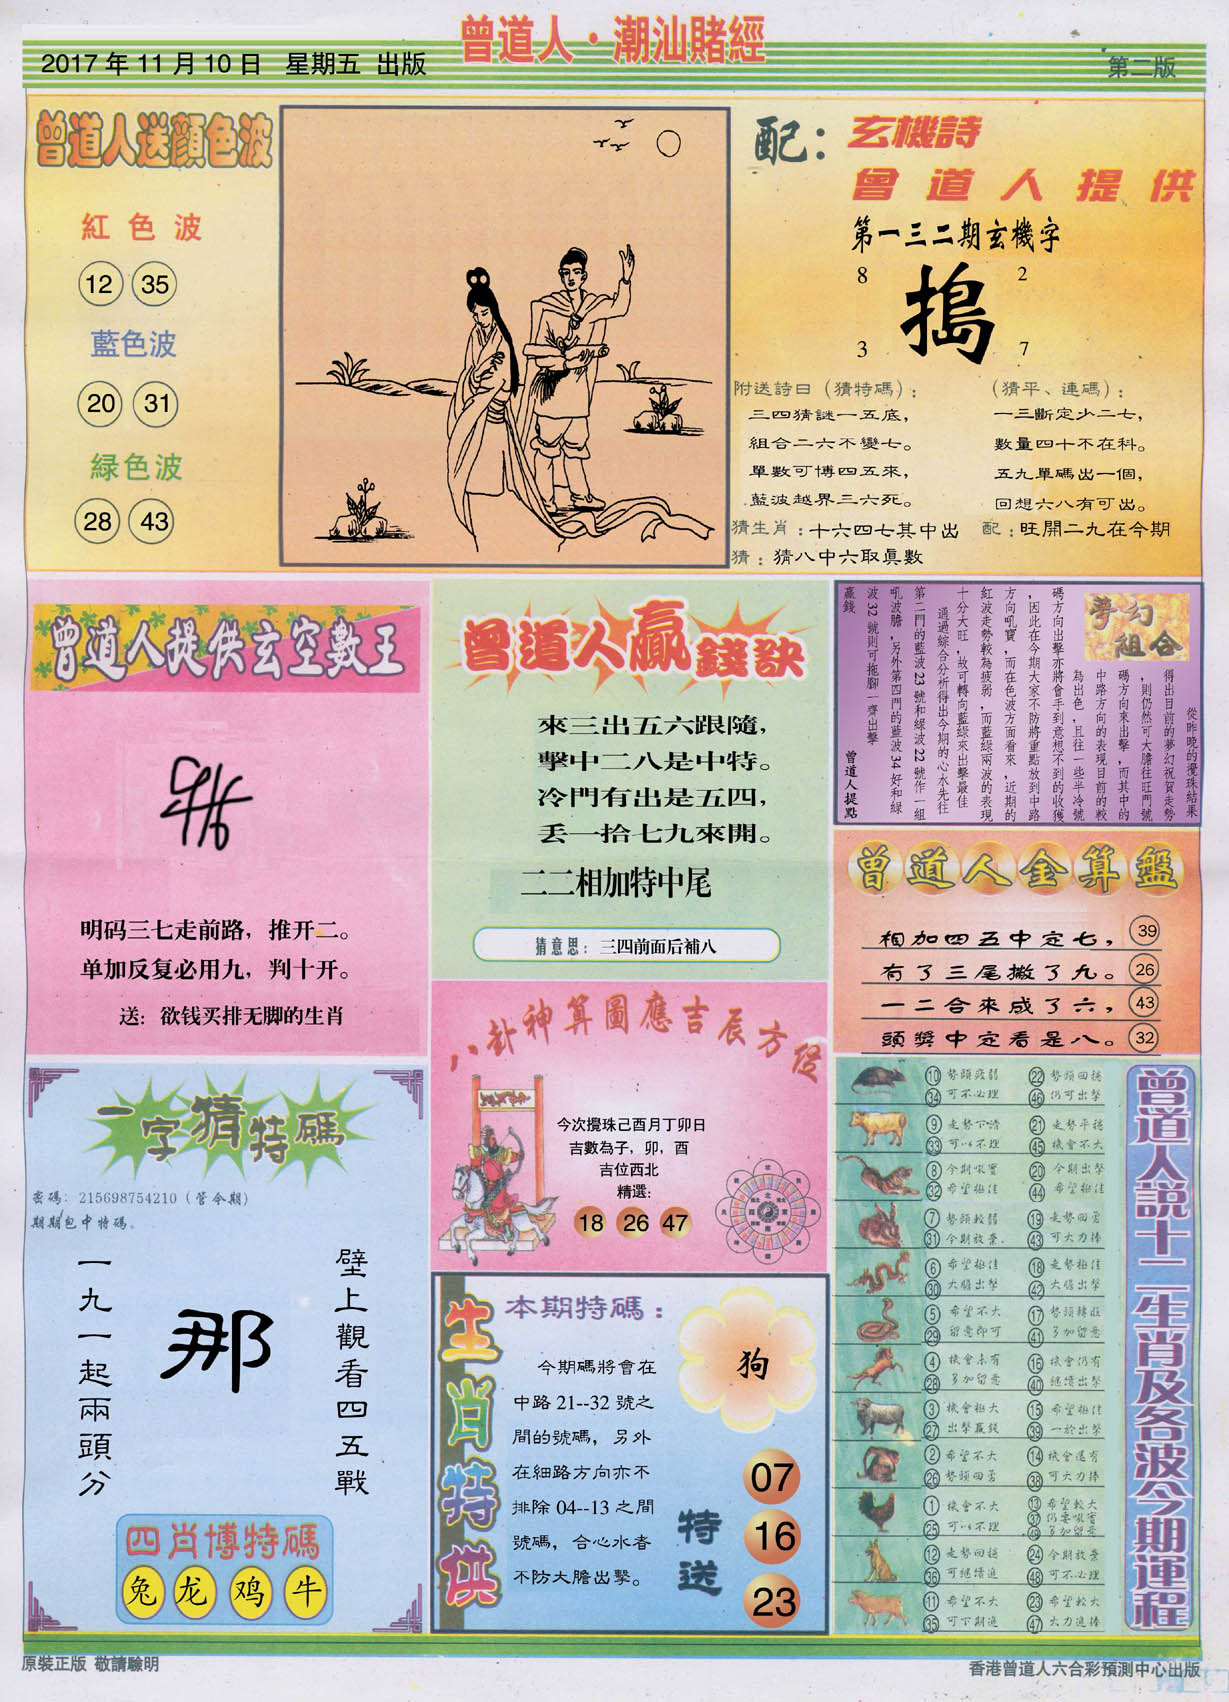 曾道人·潮汕賭經
2017年11月10日 星期五 出版
第二版
曾道人送顏色波
紅色波
12 35
藍色波
20 31
緑色波
28 43
配：玄機詩
曾道人提供
第一三二期玄機字
8 2
搗
3 7
附送詩日（猜特碼）：
三四猜謎一五底，
組合二六不變七。
單數可博四五來，
藍波越界三六死。
（猜平、連碼）：
一三斷定少二七，
數量四十不在科。
五九單碼出一個，
回想六八有可出。
猜生肖：十六四七其中出
配：旺開二九在今期
猜：猜八中六取眞數
曾道人提供玄空數王
明码三七走前路，推开二。
单加反复必用九，判十开。
送：欲钱买排无脚的生肖
曾道人贏錢訣
來三出五六跟隨，
擊中二八是中特。
冷門有出是五四，
丟一拾七九來開。
二二相加特中尾
猜意思：三四前面后補八
夢幻組合
從昨晚的攪珠結果
得出目前的夢幻祝賀走勢
，則仍然可大膽往旺門號
碼方向來出擊，而其中的
中路方向的表現目前的較
為出色，且往一些半冷號
碼方向出擊亦將會手到意想不到的收獲
，因此在今期大家不防將重點放到中路
方向吼寶，而在色波方面看來，近期的
紅波走勢較為疲弱，而藍綠兩波的表現
十分大旺，故可轉向藍綠來出擊最佳
通過綜合分析得出今期的心水先往
第二門的藍波23號和緑波22號作一組
吼波膽，另外第四門的藍波34好和綠
波32號則可拖腳一齊出擊
贏錢
曾道人提點
曾道人金算盤
相加四五中定七，39
有了三尾撇了九。26
一二合來成了六，43
頭獎中定看是八。32
八卦神算圖應吉辰方位
今次攪珠己酉月丁卯日
吉數為子，卯，酉
吉位西北
精選:
18 26 47
一字猜特碼
密碼：215698754210（管令期）
期期包中特碼。
壁上觀看四五戰
那
一九一起兩頭分
四肖博特碼
兔 龙 鸡 牛
生肖特供
本期特碼：
今期碼將會在
中路21--32號之
間的號碼，另外
在細路方向亦不
排除04--13之間
號碼，合心水者
不防大膽出擊。
狗
特送
07
16
23
曾道人説十二生肖及各波今期運程
10 勢頭疲弱 22 勢頭回穩
34 可不必理 46 仍可出擊
9 走勢下滑 21 走勢平穩
33 可以不理 45 機會不大
8 今期吼寶 20 今期出擊
32 希望極佳 44 希望極佳
7 勢頭較弱 19 走勢回勇
31 今期放棄 43 可大力捧
6 希望極佳 18 走勢極佳
30 大膽出擊 42 大膽出擊
5 希望不大 17 勢頭轉旺
29 留意即可 41 多加留意
4 機會未有 16 機會仍有
28 多加留意 40 繼續出擊
3 機會極大 15 希望極佳
27 出擊贏錢 39 一於出擊
2 希望不大 14 機會還有
26 勢頭回勇 38 可大力捧
1 機會不大 13 希望較大
25 可以不理 37 仍要吼實
49 多加留意
12 走勢回穩 24 今期放棄
36 可繼續追 48 可不必理
11 希望不大 23 希望較大
35 可下期追 47 大力追捧
原裝正版 敬請驗明
香港曾道人六合彩預測中心出版